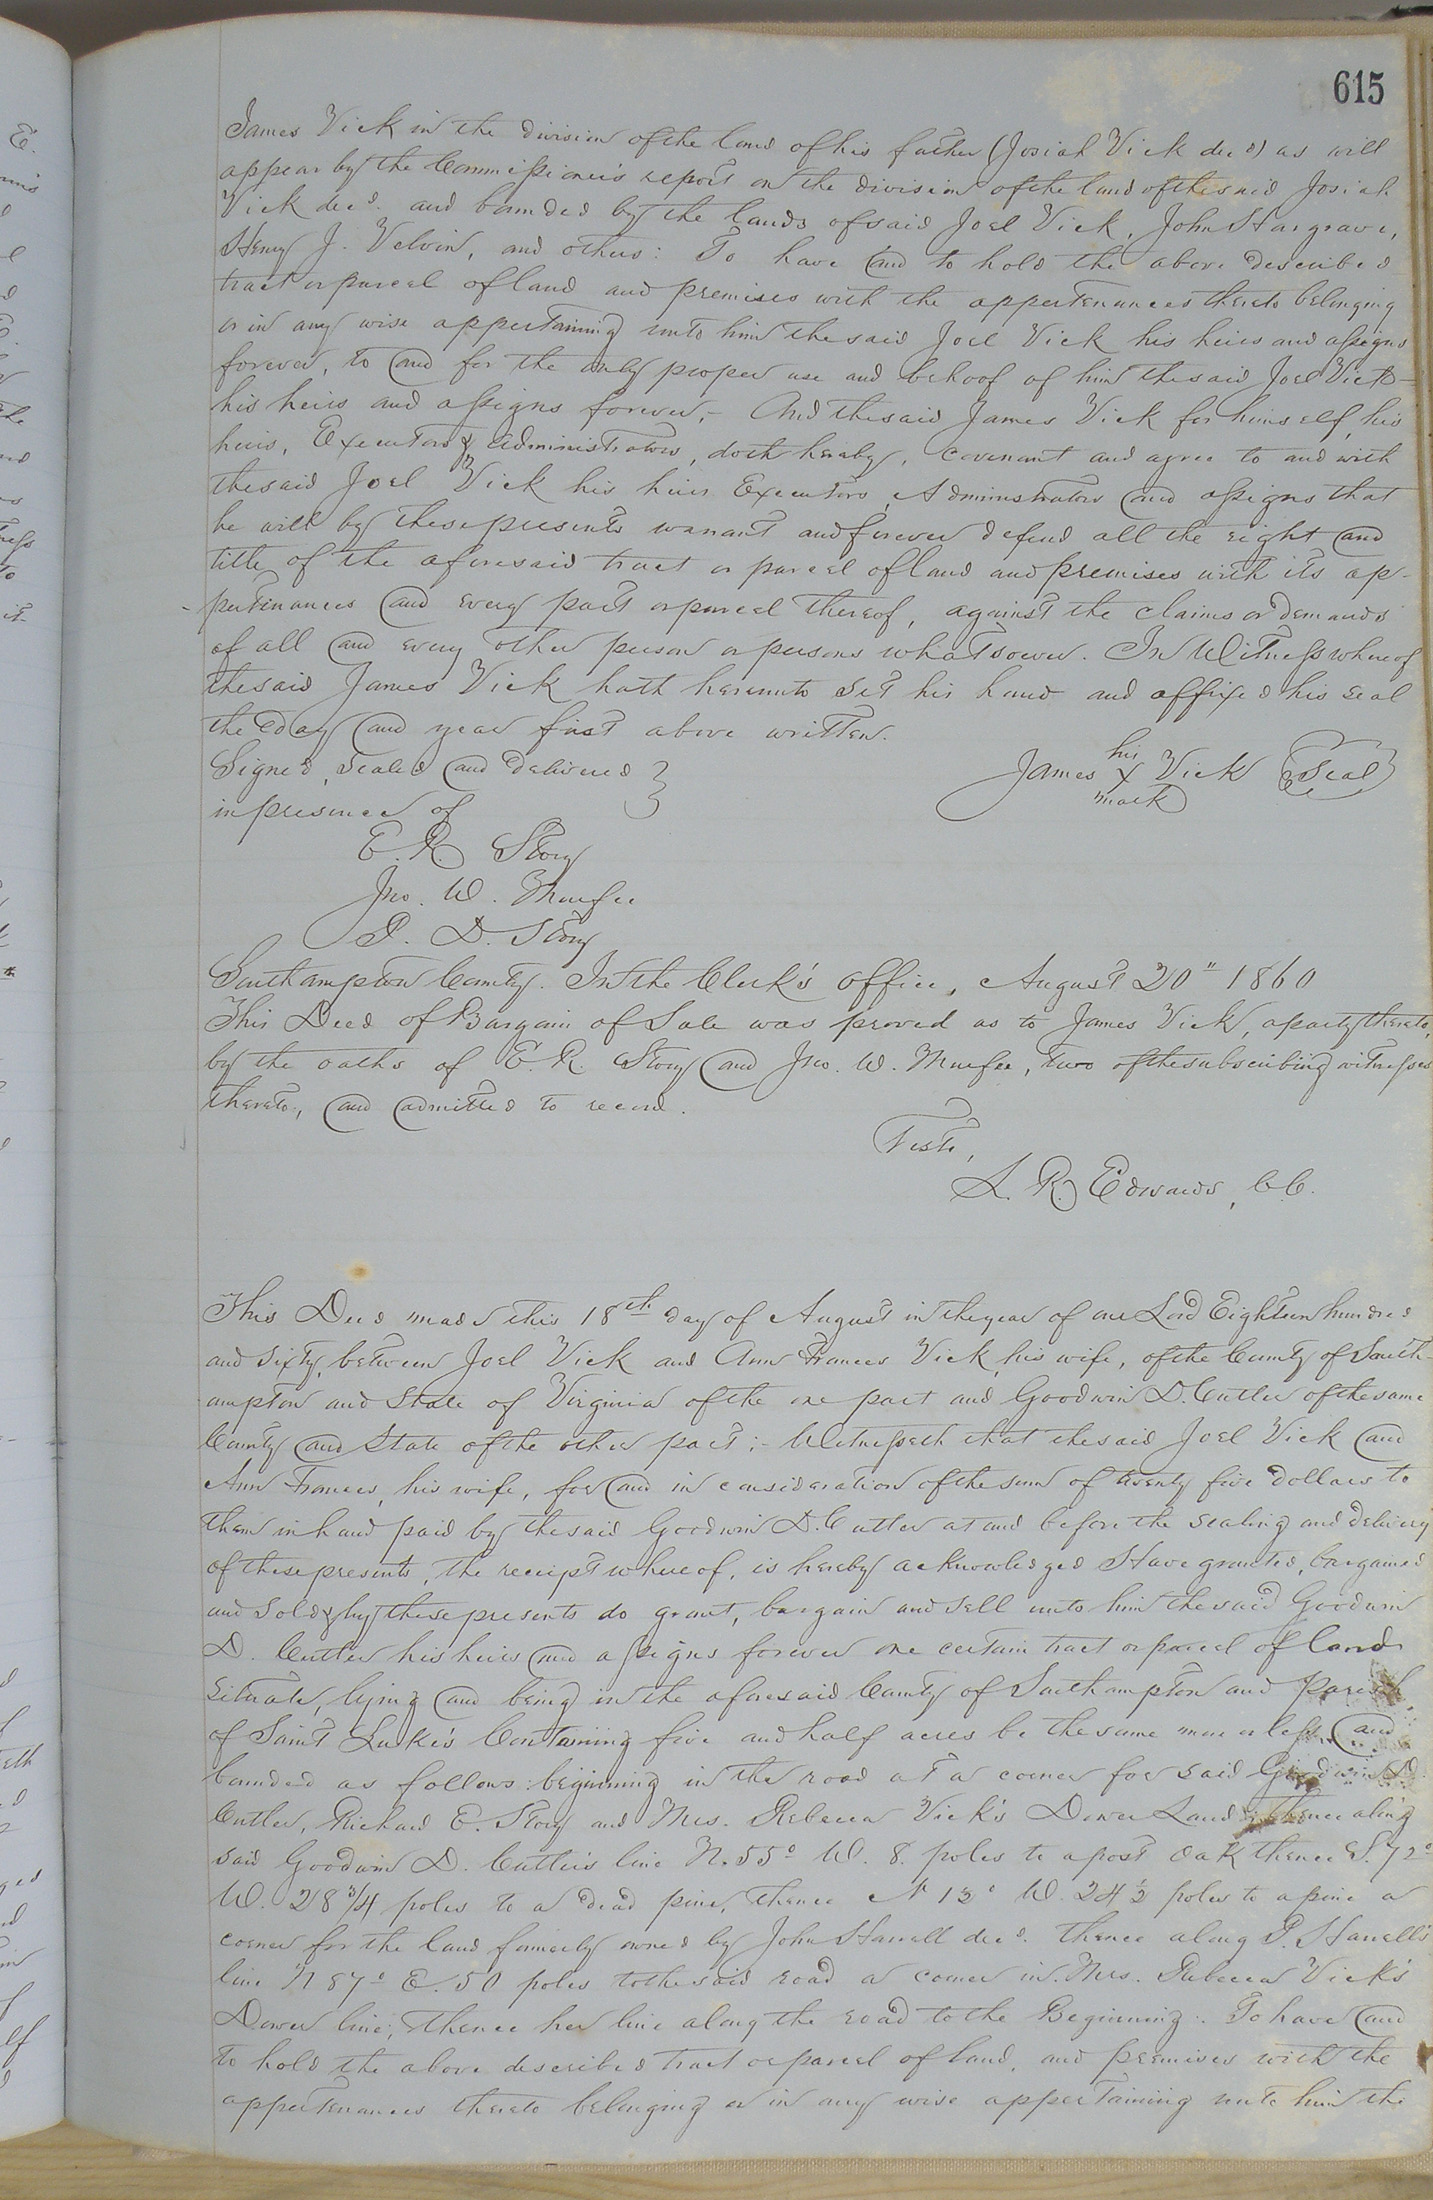 615
James Vick in the division of the land of his father (Josiah Vick decd) as will
appear by the Commissioner's report on the division of the land of the said Josiah
Vick decd. and bounded by the lands of said Joel Vick, John Hargrave,
Henry J. Velvin, and others: To have and to hold the above described
tract or parcel of land and premises with the appertenances thereto belonging
or in any wise appertaining unto him the said Joel Vick his heirs and assigns
forever, to and for the only proper use and behoof of him the said Joel Vick
his heirs and assigns forever,- And the said James Vick for himself, his
heirs, Executors & Administrators, doth hereby, covenant and agree to and with
the said Joel Vick his heirs Executors, Administrators and assigns that
he will by these presents warrant and forever defend all the right and
title of the aforesaid tract or parcel of land and premises with its ap-
-pertinances and every part or parcel thereof, against the claims or demands
of all and every other person or persons whatsoever. In Witness whereof
the said James Vick hath hereunto set his hand and affixed his seal
the day and year first above written.
Signed, sealed and delivered } James his X mark Vick {Seal}
in presence of
E. R. Story
Jno. W. Murfee
P. D. Story
Southampton County. In the Clerk's office, August 20" 1860
This Deed of Bargain of Sale was proved as to James Vick, a party thereto,
by the oaths of E. R. Story and Jno. W. Murfee, two of the subscribing witnesses
thereto, and admitted to record.
Teste,
L. R. Edwards, C.C.
This Deed made this 18th day of August in the year of our Lord Eighteen hundred
and sixty, between Joel Vick and Ann Frances Vick, his wife, of the County of South-
ampton and State of Virginia of the one part and Goodwin D. Cutler of the same
County and State of the other part:- Witnesseth that the said Joel Vick and
Ann Frances, his wife, for and in consideration of the sum of twenty five dollars to
them in hand paid by the said Goodwin D. Cutler at and before the sealing and delivery
of these presents, the receipt whereof, is hereby acknowledged Have granted, bargained
and sold & by these presents do grant, bargain and sell unto him the said Goodwin
D. Cutler his heirs and assigns forever one certain tract or parcel of land
situate, lying and being in the aforesaid County of Southampton and Parish
of Saint Luke's Containing five and half acres be the same more or less, and
bounded as follows: beginning in the road at a corner for said Goodwin D.
Cutler, Richard E. Story and Mrs. Rebecca Vick's Dower Land; thence along
said Goodwin D. Cutler's line N. 55° W. 8. poles to a post oak thence S. 72°
W. 28 3/4 poles to a dead pine, thence N 13° W. 24 1/2 poles to a pine a
corner for the land formerly owned by John Harrell decd. thence along P. Harrell's
line N 87° E. 50 poles to the said road a corner in Mrs. Rebecca Vick's
Dower line; thence her line along the road to the Beginning:. To have and
to hold the above described tract or parcel of land, and premises with the
appertenances thereto belonging or in any wise appertaining unto him the